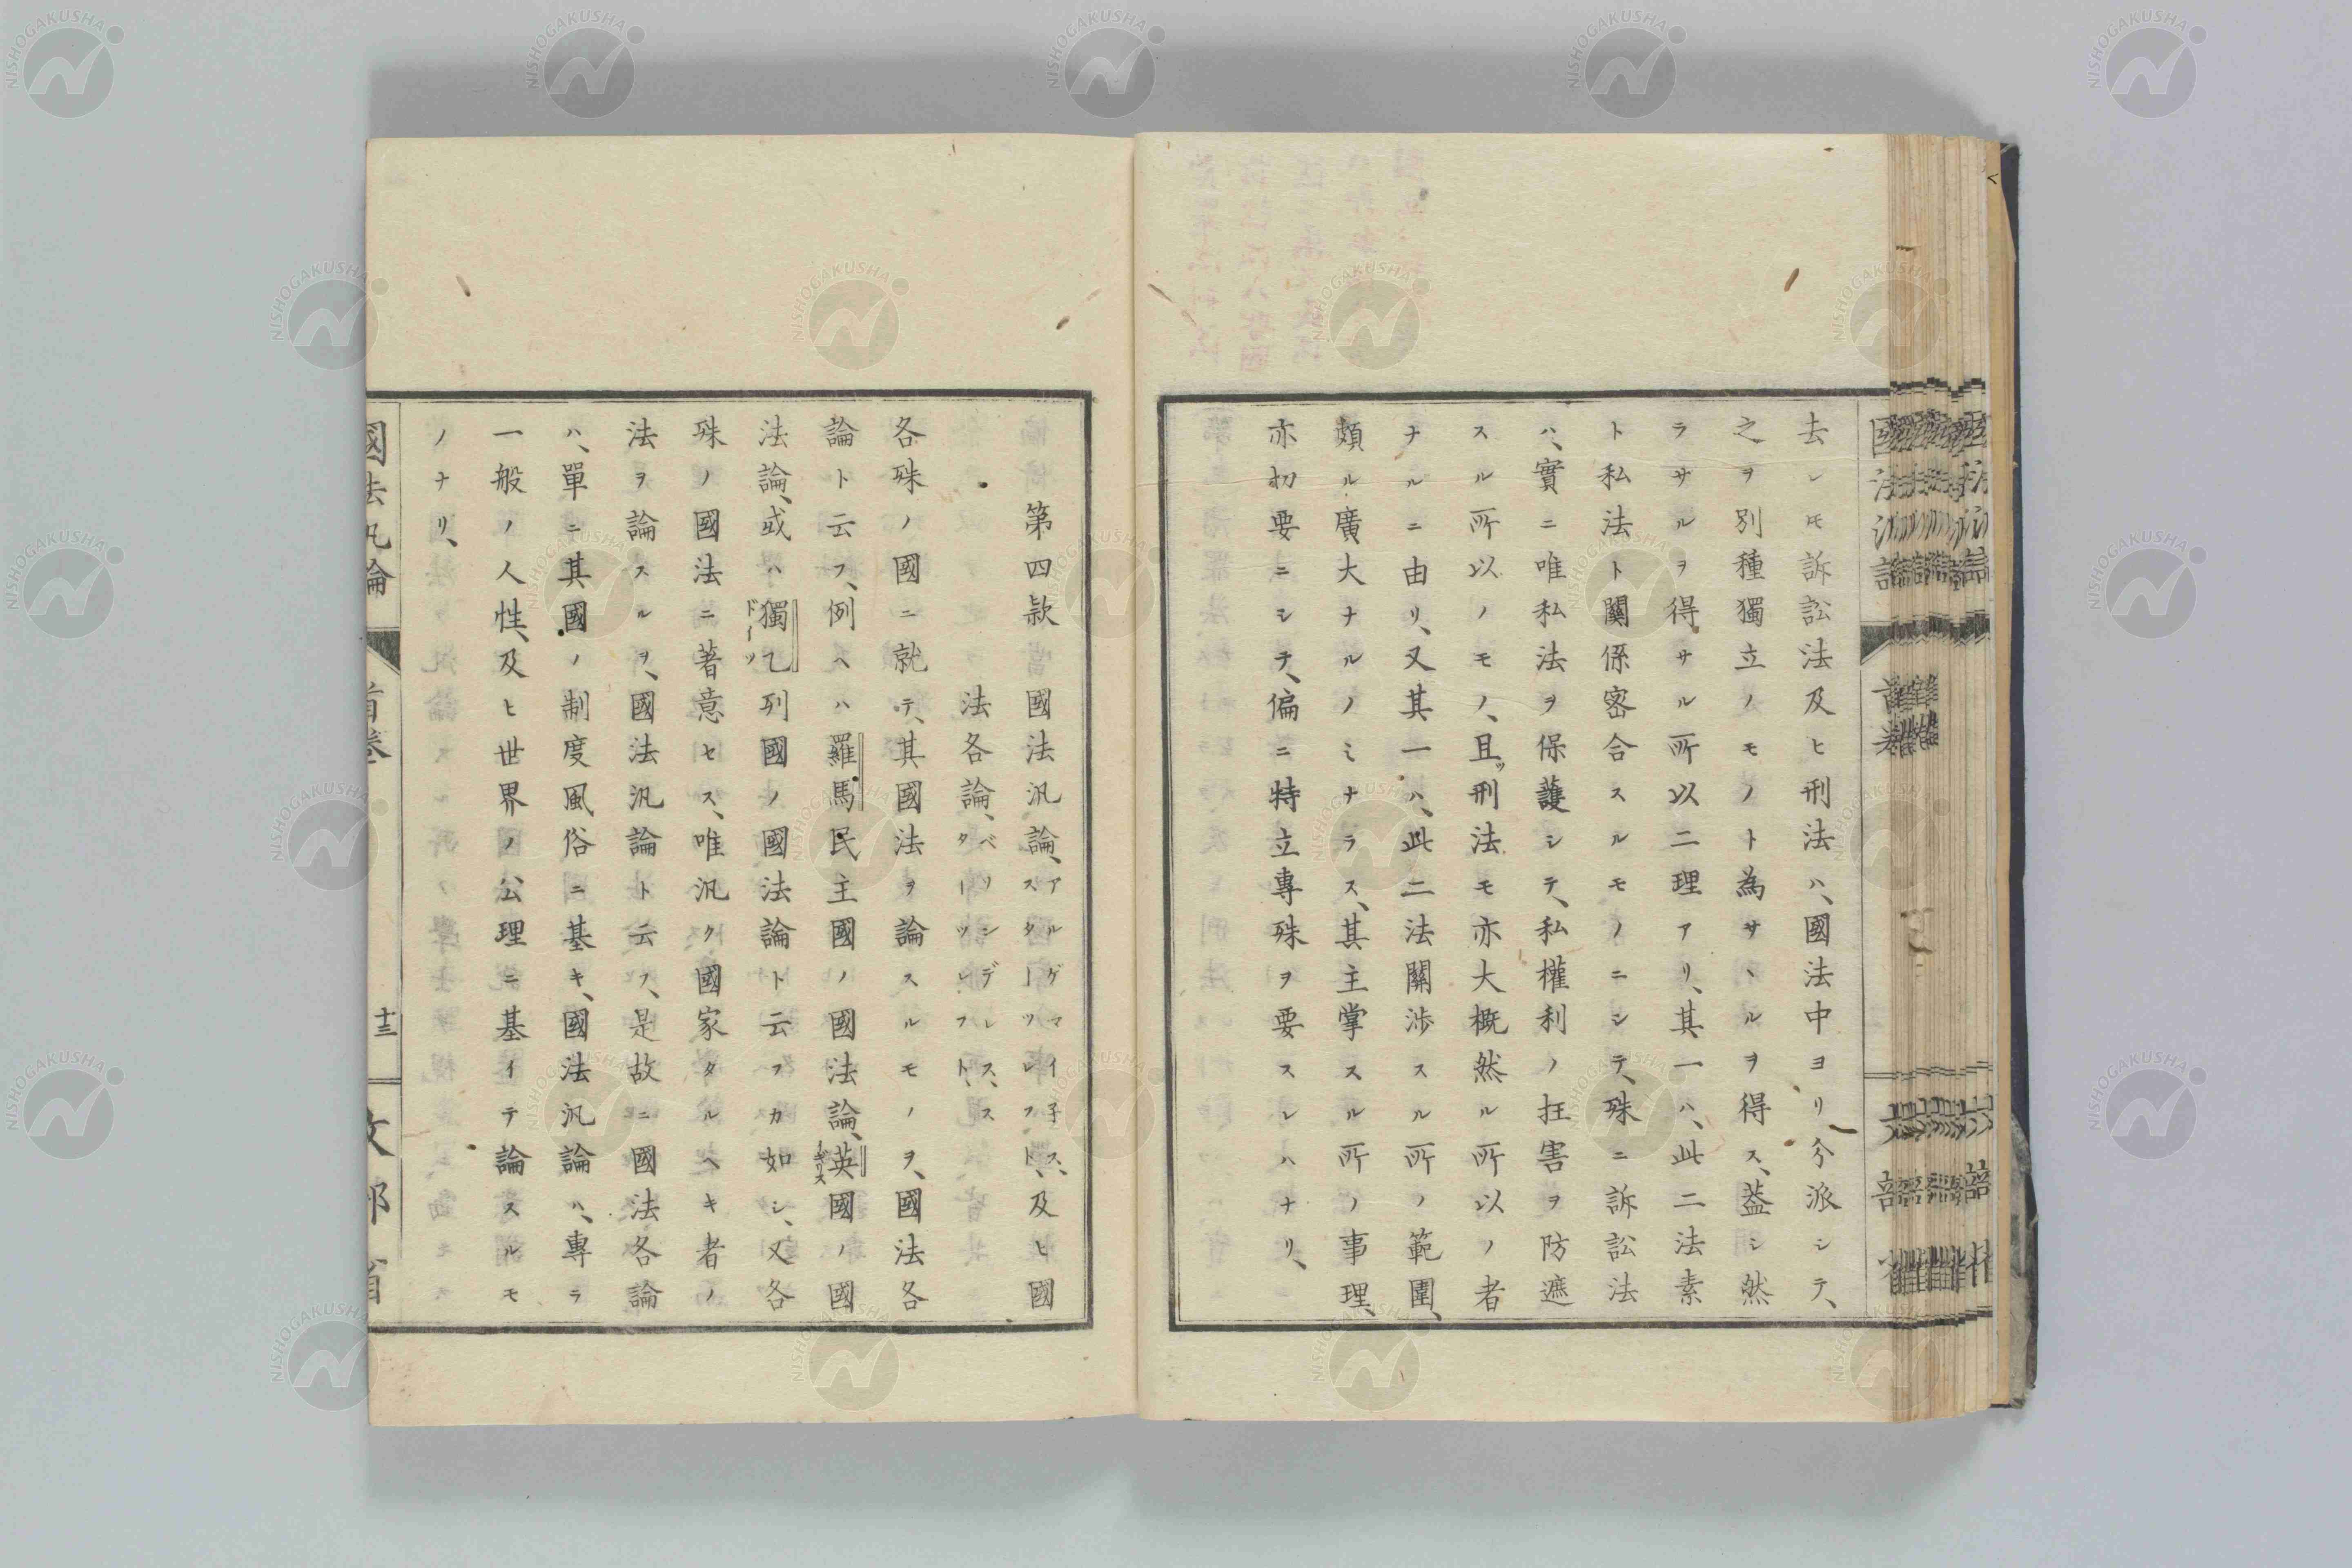 去レ𪜈訴訟法及ヒ刑法ハ、國法中ヨリ分派シテ、
之ヲ別種獨立ノモノト為サヽルヲ得ス、葢シ然
ラサルヲ得サル所以二理アリ、其一ハ、此二法素
ト私法ト關係密合スルモノニシテ、殊ニ訴訟法
ハ、實ニ唯私法ヲ保護シテ、私權利ノ抂害ヲ防遮
スル所以ノモノ、且ツ刑法モ亦大概然ル所以ノ者
ナルニ由リ、又其一ハ、此二法關渉スル所ノ範圍、
頗ル廣大ナルノミナラス、其主掌スル所ノ事理、
亦切要ニシテ、偏ニ特立專殊ヲ要スレハナリ、
第四款 國法汎論、アルゲマイ子ス、スターツレフト、及ヒ國
法各論、ベソンデレス、スターツレフト、
各殊ノ國ニ就テ、其國法ヲ論スルモノヲ、國法各
論ト云フ、例ヘハ羅馬民主國ノ國法論、英國ノ國
イギリス
法論、或ハ獨乙列國ノ國法論ト云フカ如シ、又各
ドーツ
殊ノ國法ニ著意セス、唯汎ク國家タルヘキ者ノ
法ヲ論スルヲ、國法汎論ト云フ、是故ニ國法各論
ハ、單ニ其國ノ制度風俗ニ基キ、國法汎論ハ、專ラ
一般ノ人性、及ヒ世界ノ公理ニ基イテ論スルモ
ノナリ、
國法汎論 首卷 十三 文部省
NISHOGAKUSHA